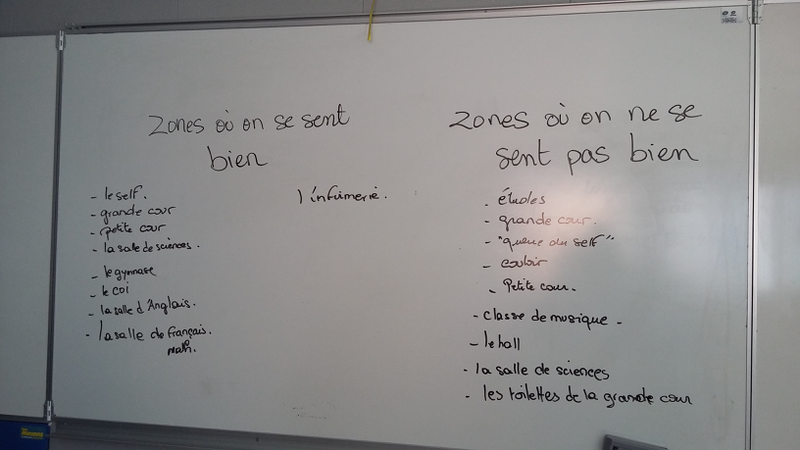 Zones où on se sent
bien
- le self.
- grande cour
- petite cour
- la salle de sciences.
- le gymnase
- le CDI
- la salle d'Anglais.
- la salle de français.
math.
l'infirmerie.
Zones où on ne se
sent pas bien
- études
- grande cour.
- "queue du self"
- couloir
- Petite cour.
- classe de musique.
- le hall
- la salle de sciences
- les toilettes de la grande cour